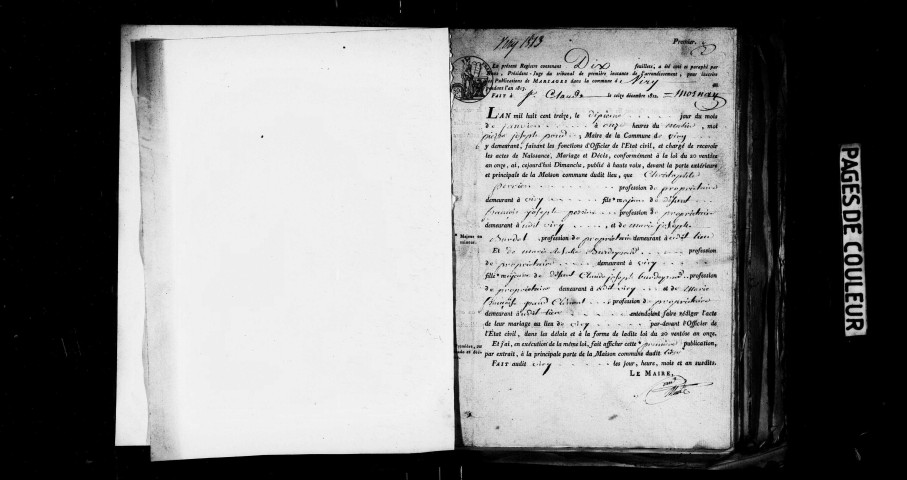 Viry 1813
Premier.
Le présent Registre contenant Dix feuillets, a été coté et paraphé par
Nous, Président-Juge du tribunal de première instance de l'arrondissement, pour inscrire
les Publications de MARIAGES dans la commune de Viry
pendant l'an 1813.
FAIT à St. Claude le seize décembre 1812.
L'AN mil huit cent treize, le dixième jour du mois
de janvier à onze heures du matin, moi
pierre joseph Maire de la Commune de viry
y demeurant, faisant les fonctions d'Officier de l'Etat civil, et chargé de recevoir
les actes de Naissance, Mariage et Décès, conformément à la loi du 20 ventôse
an onze, ai, cejourd'hui Dimanche, publié à haute voix, devant la porte extérieure
et principale de la Maison commune dudit lieu, que
perrin profession de propriétaire
demeurant à viry fils * majeur de défunt
françois joseph perrin profession de propriétaire
demeurant audit viry, et de marie josephe
profession de propriétaire demeurant audit lieu
* Majeur ou
mineur.
Et de marie profession
de propriétaire demeurant à viry
fille * majeure de défunt Claude joseph profession
de propriétaire demeurant audit viry et de Marie
françoise grand Clément profession de propriétaire
demeurant audit lieu entendaient faire rédiger l'acte
de leur mariage au lieu de viry par-devant l'Officier de
l'Etat civil, dans les délais et à la forme de ladite loi du 20 ventôse an onze.
Et j'ai, en exécution de la même loi, fait afficher cette * première publication,
par extrait, à la principale porte de la Maison commune dudit lieu
FAIT audit viry les jour, heure, mois et an susdits.
LE MAIRE,
PAGES DE COULEUR